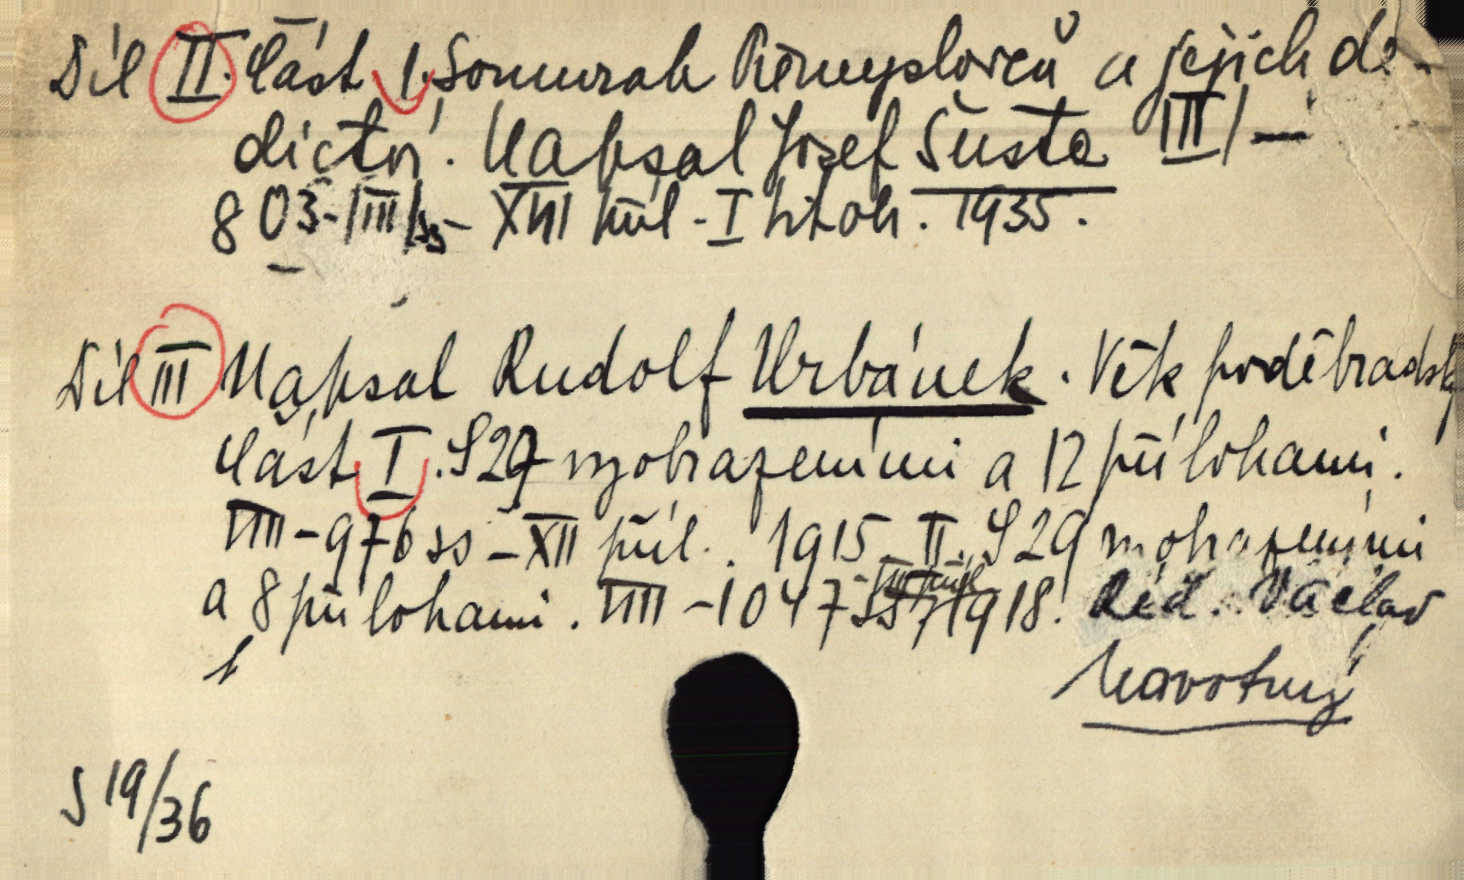 Díl II. Část I. Soumrak Přemyslovců a jejich dě-
dictví. Napsal Josef Šusta III/-
803-/III/ss- XVII příl - I litogr. 1935.
Díl III Napsal Rudolf Urbánek. Věk poděbradský
Část I. S 29 vyobrazeními a 12 přílohami.
VIII-976 ss - XII příl. 1915. II. S 29 vyobrazeními
a 8 přílohami. VIII - 1047 ss 1918. Red. Václav
Novotný
S 19/36